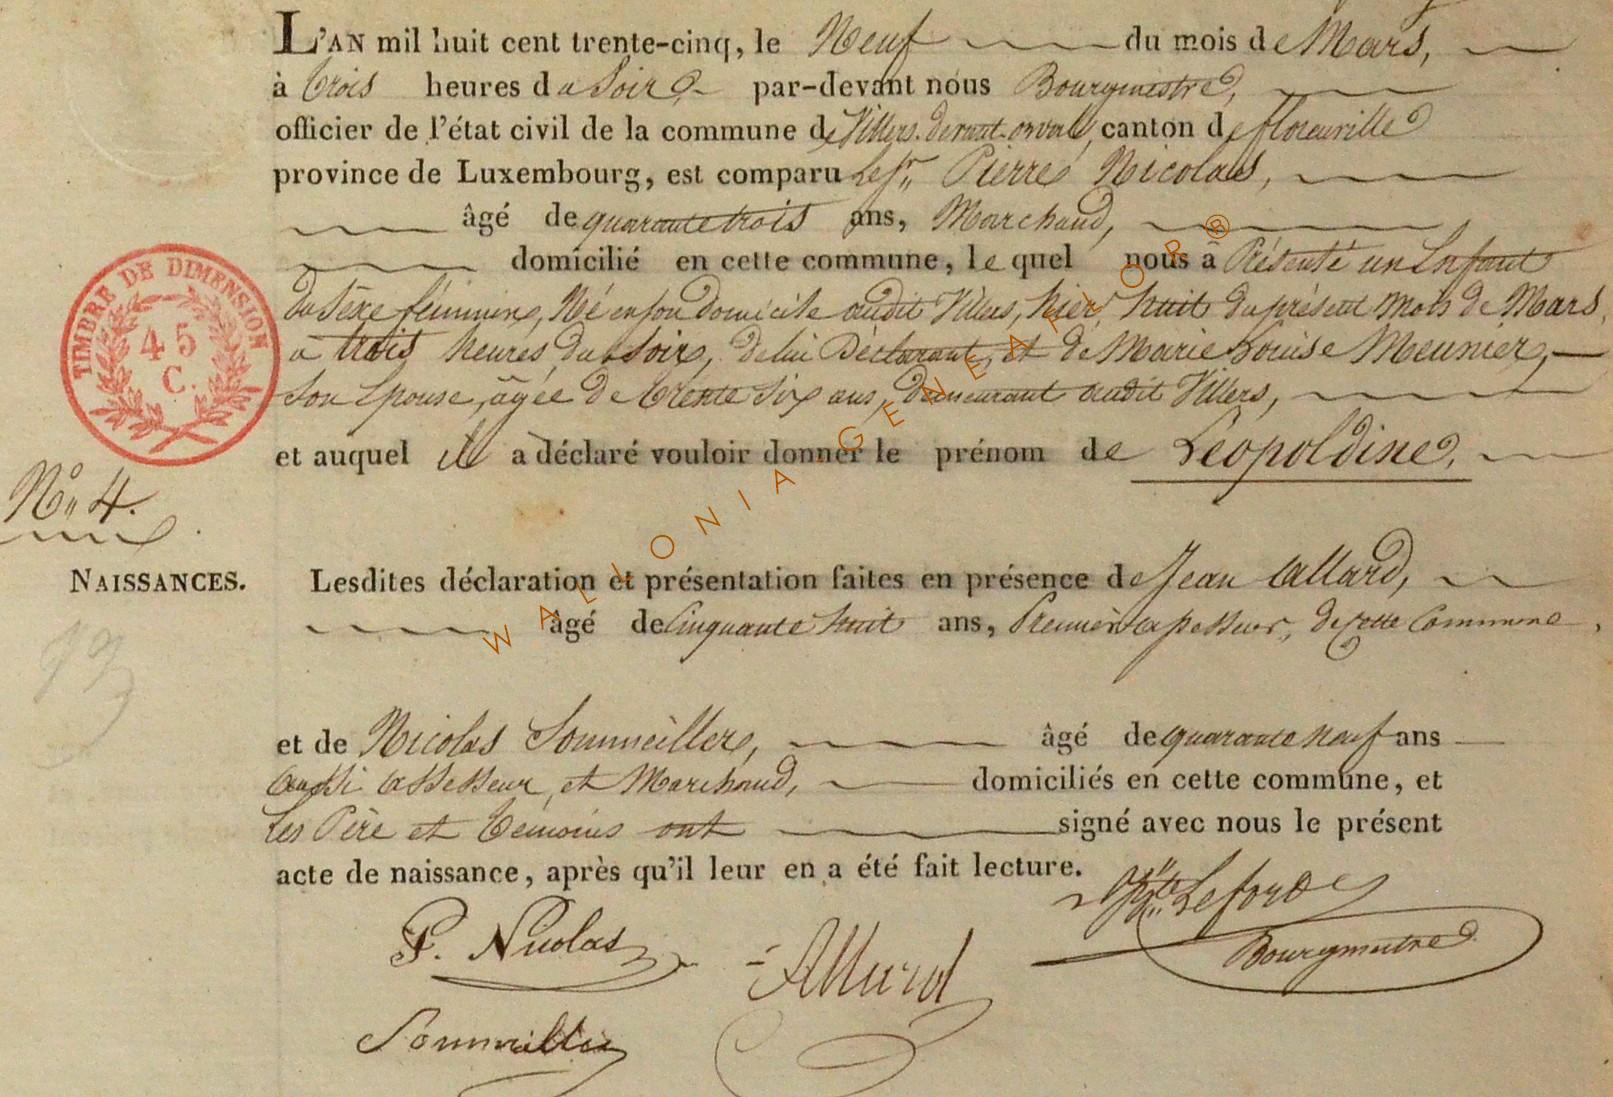 L'AN mil huit cent trente-cinq, le Neuf du mois de Mars,
à trois heures du Soir, par-devant nous Bourgmestre,
officier de l'état civil de la commune de Villers-devant-orval, canton de florenville
province de Luxembourg, est comparu le Sr. Pierre Nicolas,
âgé de quarante trois ans, Marchand,
domicilié en cette commune, lequel nous a Présenté un Enfant
du Sèxe féminin, Né en son domicile audit Villers, hier, huit du présent mois de Mars,
à trois heures du Soir, de lui Déclarant, et de Marie Louise Meunier,
son Epouse, âgée de trente Six ans, demeurant audit Villers,
et auquel il a déclaré vouloir donner le prénom de Léopoldine.
TIMBRE DE DIMENSION
45
C.
No. 4.
NAISSANCES.
Lesdites déclaration et présentation faites en présence de Jean Allard,
âgé de Cinquante huit ans, Premier assesseur, de cette Commune,
et de Nicolas Sommeiller, âgé de quarante neuf ans
aussi assesseur, et Marchand, domiciliés en cette commune, et
les Père et témoins ont signé avec nous le présent
acte de naissance, après qu'il leur en a été fait lecture.
P. Nicolas
Allard
Leforde
Bourgmestre
Sommeillier
WALLONIA GENEAFLOR®